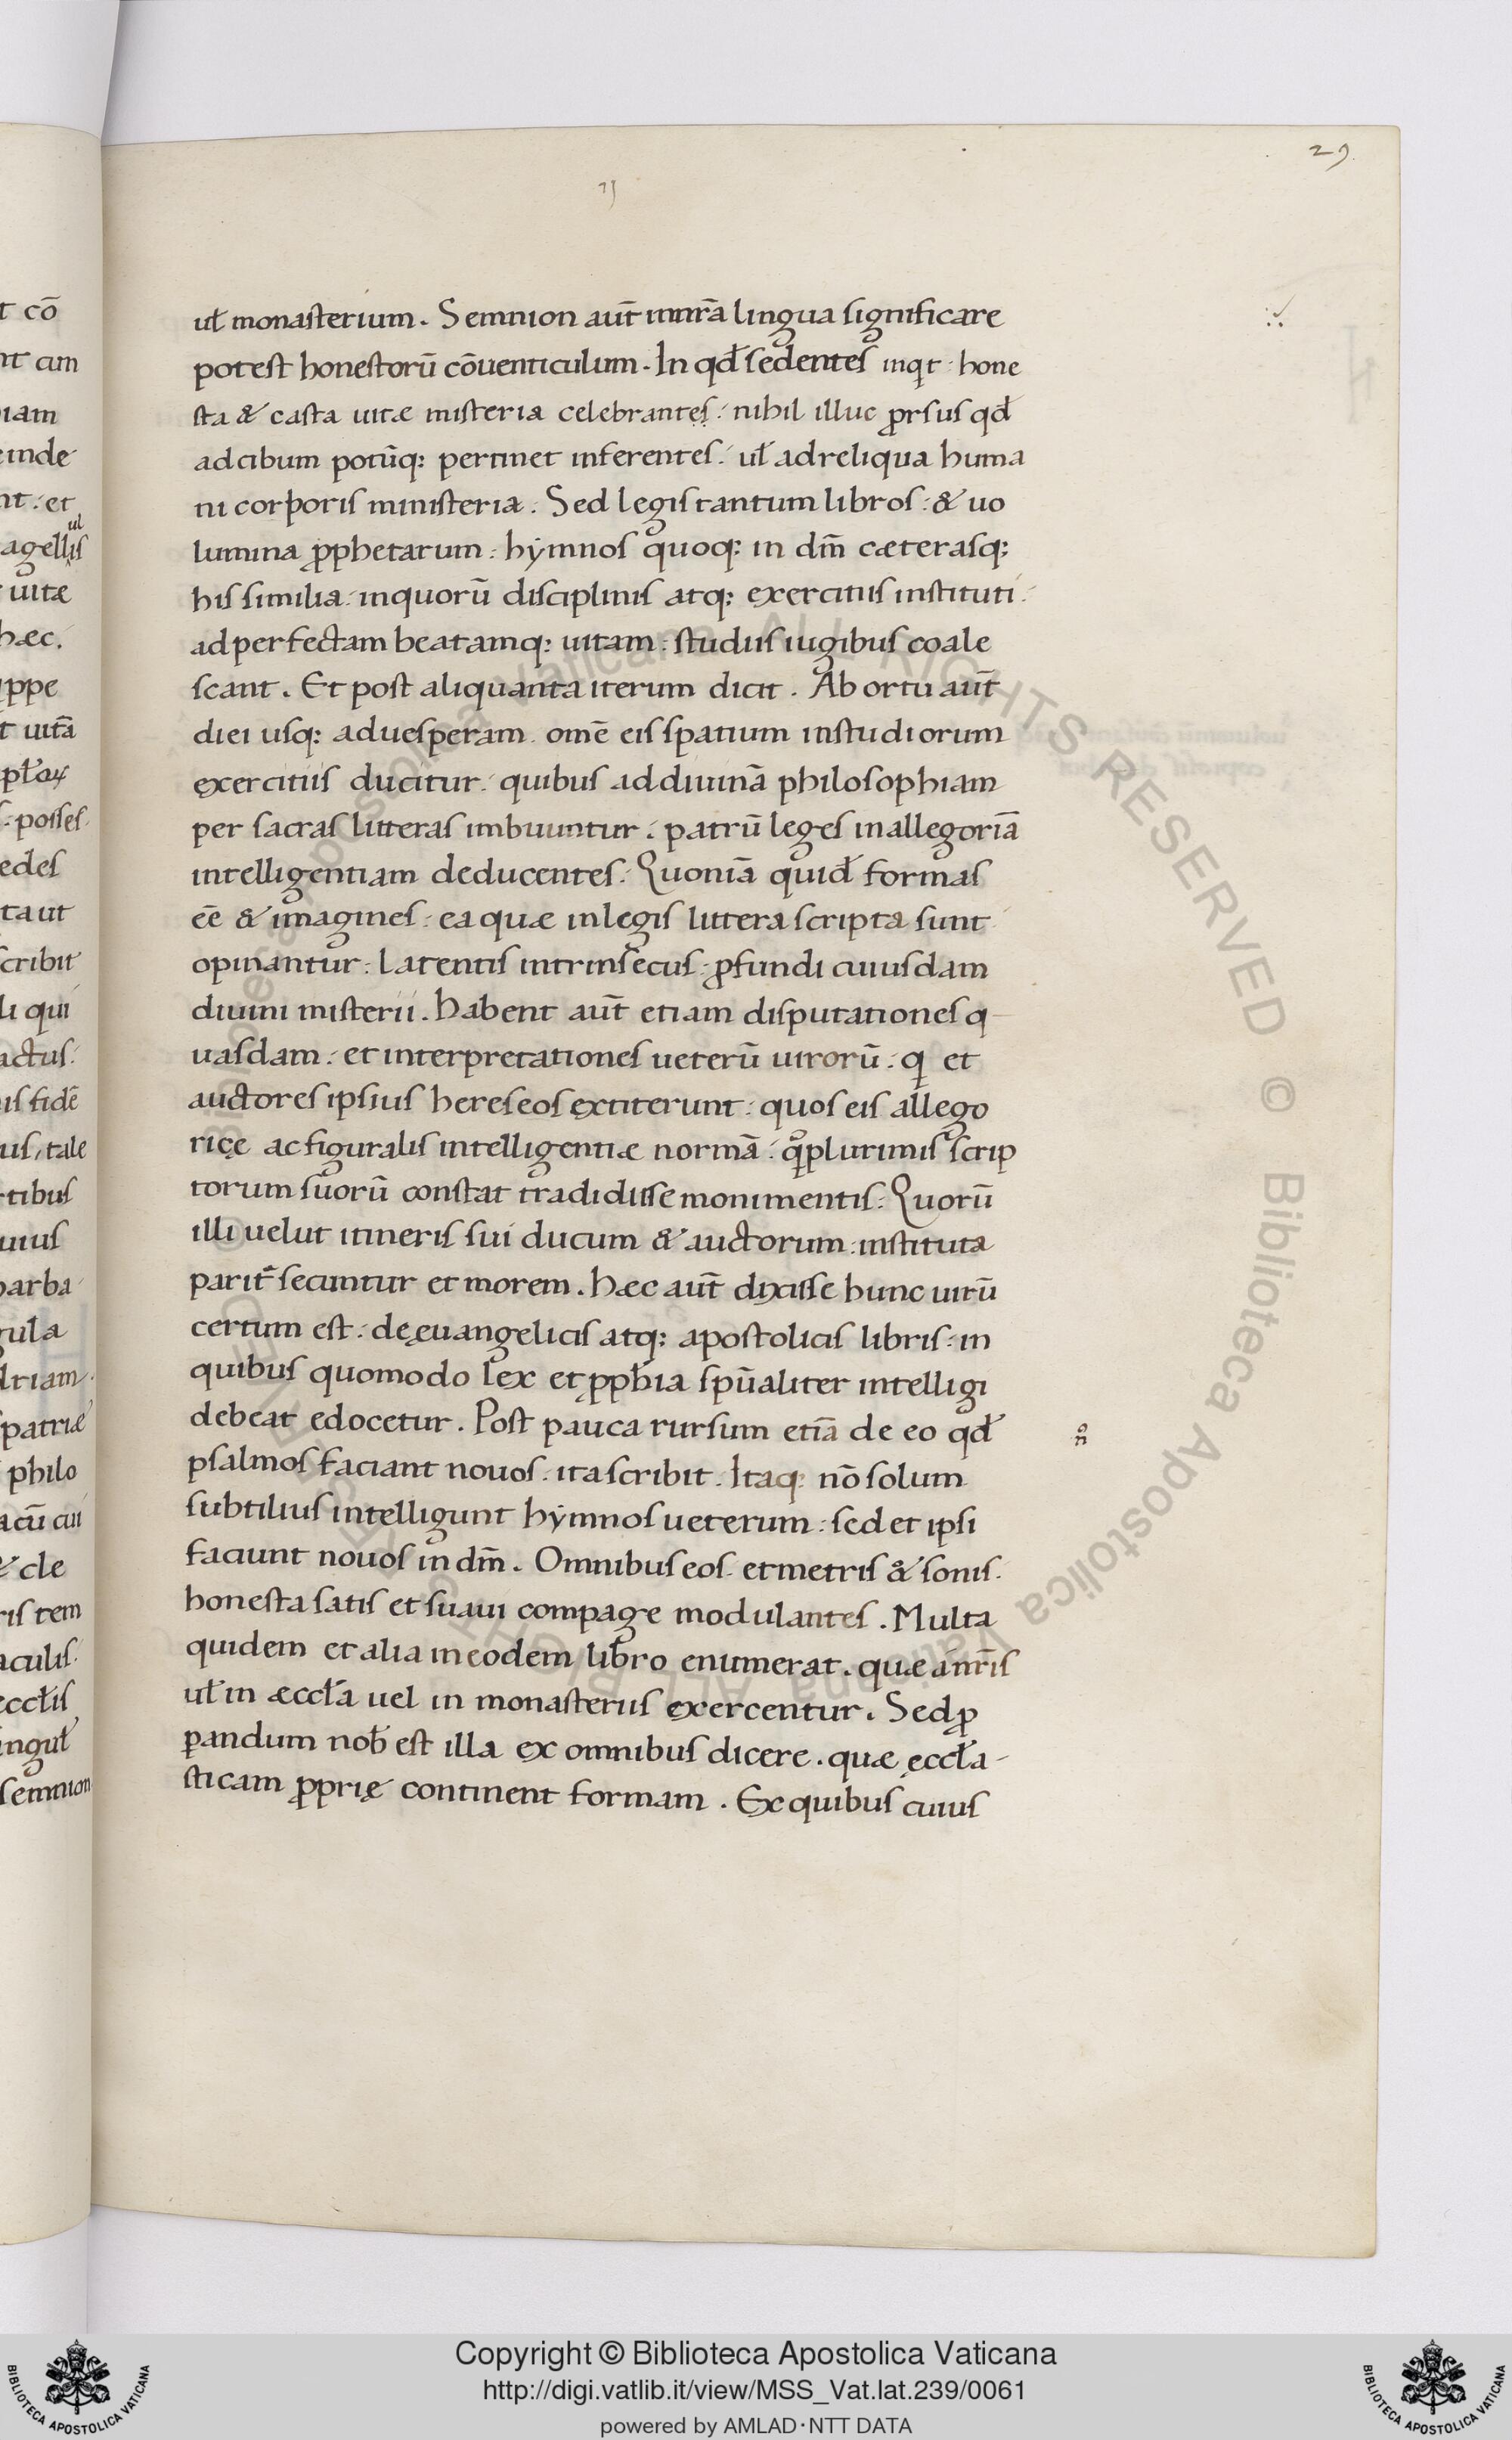 29
ut cō
ul̄ monasterium. Semnion aut̄ in nr̄a lingua significare
potest honestorū cōuenticulum. In qd̄ sedentes inqt. hone
sta & casta uitæ misteria celebrantes: nihil illuc ꝓrsus qd̄
ad cibum potūq; pertinet inferentes. ul̄ ad reliqua huma
ni corporis ministeria. Sed legis tantum libros: & uo
lumina ꝓphetarum: hẏmnos quoq; in dm̄ cæterasq;
his similia. in quorū disciplinis atq; exercitiis instituti.
ad perfectam beatamq; uitam: studiis iugibus coale
scant. Et post aliquanta iterum dicit. Ab ortu aut̄
diei usq; ad uesperam. omē eis spatium in studiorum
exercitiis ducitur. quibus ad diuinā philosophiam
per sacras litteras imbuuntur. patrū leges in allegoriā
intelligentiam deducentes. Quoniā quid̄ formas
eē & imagines: ea quæ in legis littera scripta sunt
opinantur: latentis intrinsecus: ꝓfundi cuiusdam
diuini misterii. Habent aut̄ etiam disputationes q
uasdam: et interpretationes ueterū uirorū: q et
auctores ipsius hereseos extiterunt: quos eis allego
ricę ac figuralis intelligentiæ normā: qplurimis scrip
torum suorū constat tradidisse monimentis: Quorū
illi uelut itineris sui ducum & auctorum: instituta
parit̄ secuntur et morem. Hæc aut̄ dixisse hunc uirū
certum est: de euangelicis atq; apostolicis libris: in
quibus quomodo lex et ꝓph̄ia spūaliter intelligi
debeat edocetur. Post pauca rursum etiā de eo qd̄
psalmos faciant nouos. ita scribit. Itaq; nō solum
subtilius intelligunt hẏmnos ueterum: sed et ipsi
faciunt nouos in dm̄. Omnibus eos. et metris & sonis.
honesta satis et suaui compage modulantes. Multa
quidem et alia in eodem libro enumerat. quæ a nr̄is
ul̄ in æccl̄a uel in monasteriis exercentur. Sed ꝓ
pandum nob̄ est illa ex omnibus dicere. quæ ęccl̄a-
sticam ꝓprię continent formam. Ex quibus cuius
Copyright © Biblioteca Apostolica Vaticana
http://digi.vatlib.it/view/MSS_Vat.lat.239/0061
powered by AMLAD·NTT DATA
BIBLIOTECA APOSTOLICA VATICANA
BIBLIOTECA APOSTOLICA VATICANA